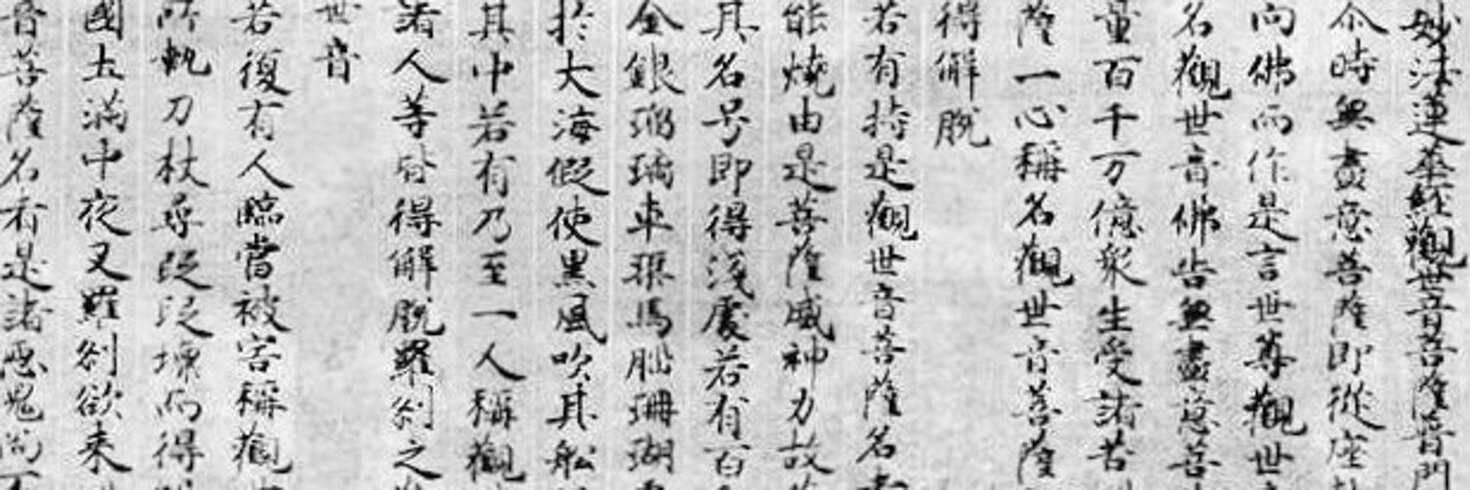 妙法蓮華經觀世音菩薩普門
尒時無盡意菩薩即從座
向佛而作是言世尊觀世
名觀世音佛告無盡意菩
量百千万億衆生受諸苦
薩一心稱名觀世音菩薩
得解脫
若有持是觀世音菩薩名
能燒由是菩薩威神力故
其名号即得淺處若有百
金銀琉璃車璖馬瑙珊瑚
於大海假使黒風吹其舩
其中若有乃至一人稱觀
諸人等皆得解脫羅刹之
世音
若復有人臨當被害稱觀
所執刀杖尋段段壞而得
國土滿中夜叉羅刹欲来
音菩薩名者是諸惡鬼尚